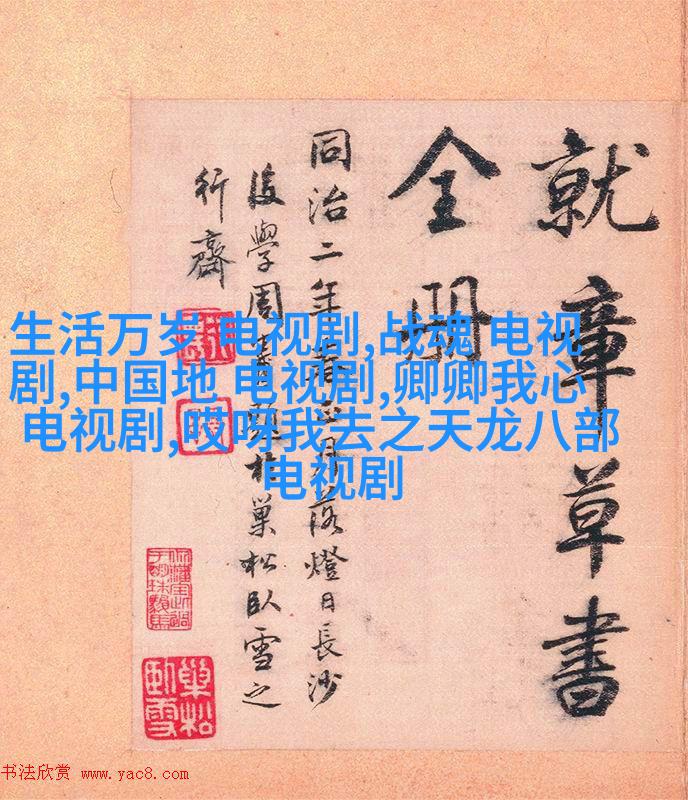 就章草書
全册
同治二年春正月落燈日長沙
後學周於巢松臥雪之
行齋
生活万岁 电视剧,战魂 电视
剧,中国地 电视剧,卿卿我心
电视剧,哎呀我去之天龙八部
电视剧
巢松
臥雪
书法欣赏 www.yac8.com